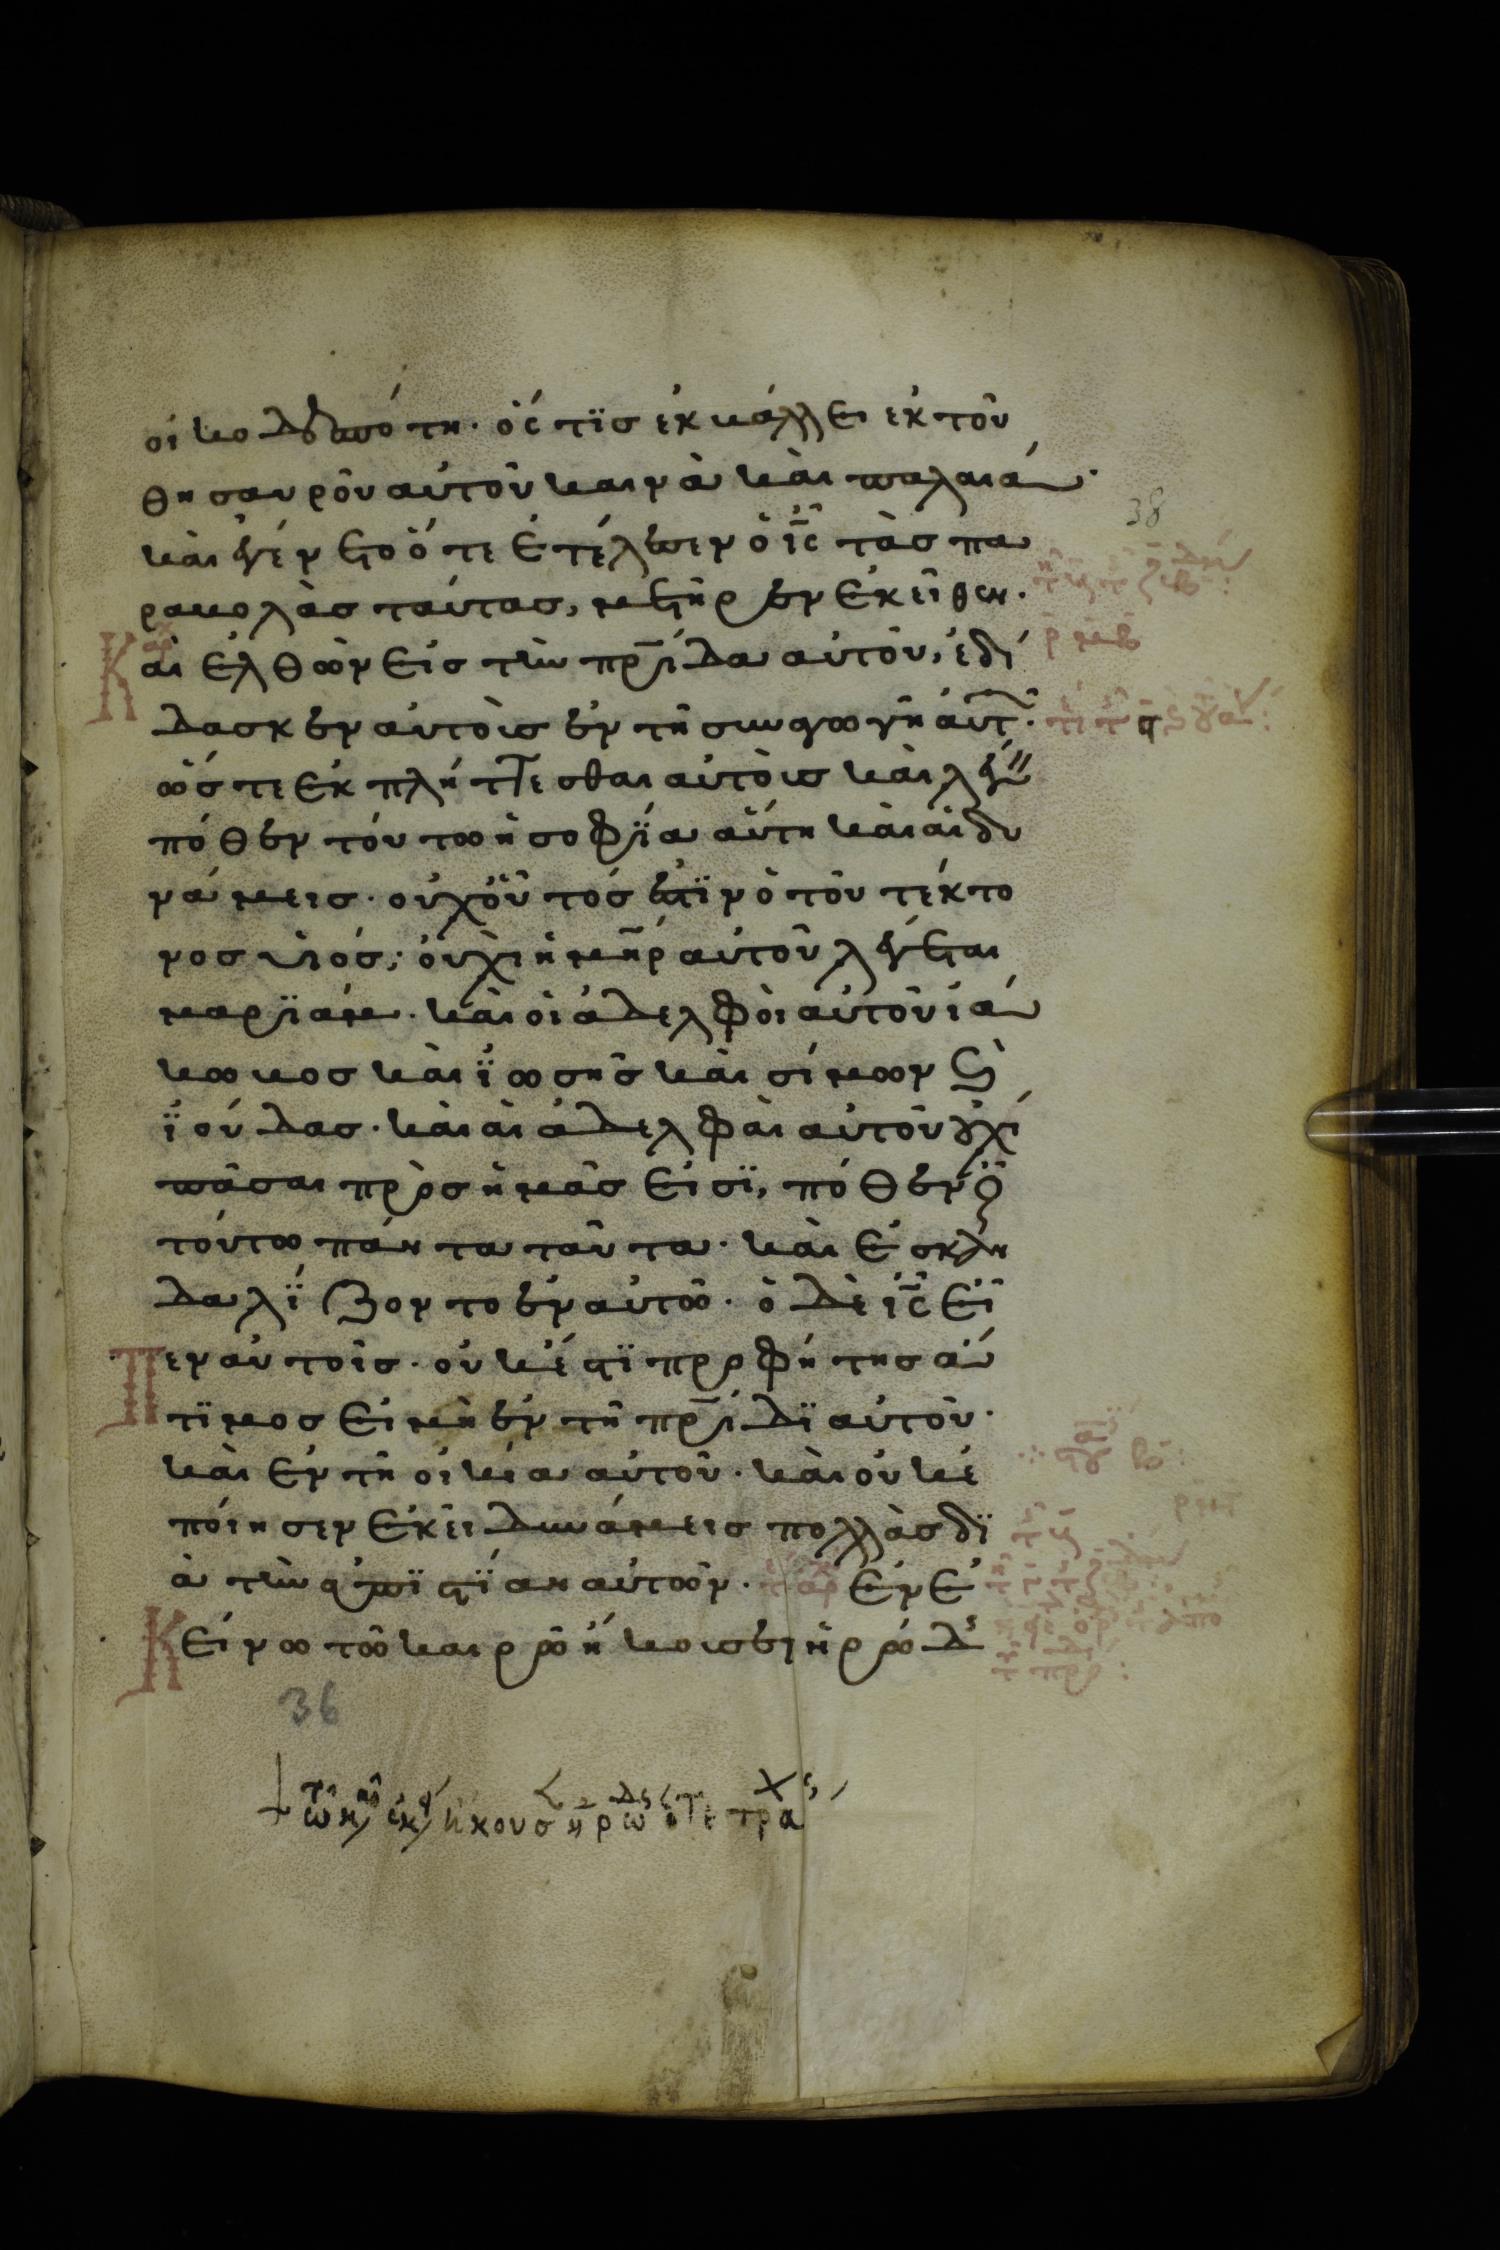 οἰκοδεσπότη· ὅς τϊσ ἐκβάλλει ἐκ τοῦ
θησαυροῦ αὐτοῦ καινὰ καὶ παλαιά·
38
καὶ ἐγένετο ὅτε ἐτέλεσεν ὁ ἰ̅ς̅ τὰσ πα
ραβολὰσ ταύτασ, μετῆρεν ἐκεῖθεν·
Καὶ ἐλθὼν εἰσ τὴν πρ̅ίδα αὐτοῦ, ἐδί
δασκεν αὐτοὺσ ἐν τῆ συναγωγῆ αὐτ·
ὥστε ἐκπλήττεσθαι αὐτοὺσ καὶ λέγ
πόθεν τούτω ἡ σοφΐα αὕτη καὶ αἱ δυ
νάμεισ· οὐχ οὗτόσ ἐστϊν ὁ τοῦ τέκτο
νοσ υἱόσ; οὐχὶ ἡ μη̅ρ αὐτοῦ λέγεται
μαρϊάμ· καὶ οἱ ἀδελφοὶ αὐτοῦ ἰά
κωβοσ καὶ ϊωσῆσ καὶ σίμων κ
ϊούδασ· καὶ αἱ ἀδελφαὶ αὐτοῦ οὐχὶ
πᾶσαι πρὸσ ἡμᾶσ εἰσϊ, πόθεν οὖ
τούτω πάντα ταῦτα· καὶ ἐσκἀν
δαλΐζοντο ἐν αὐτῶ· ὁ δὲ ἰ̅ς̅ εἶ
Πεν αὐτοῖσ· οὐκ ἔστϊ προφήτησ ἄ
τϊμοσ εἰ μὴ ἐν τῆ πρ̅ίδϊ αὐτοῦ·
καὶ ἐν τῆ οἰκία αὐτοῦ· καὶ οὐκ ἐ
ποίησεν ἐκεῖ δυνάμεισ πολλὰσ δϊ
ὰ τὴν ἀπϊστΐαν αὐτῶν· ἐν ἐ
Κείνω τῶ καιρῶ ἤκουσεν ἡρώδ
36